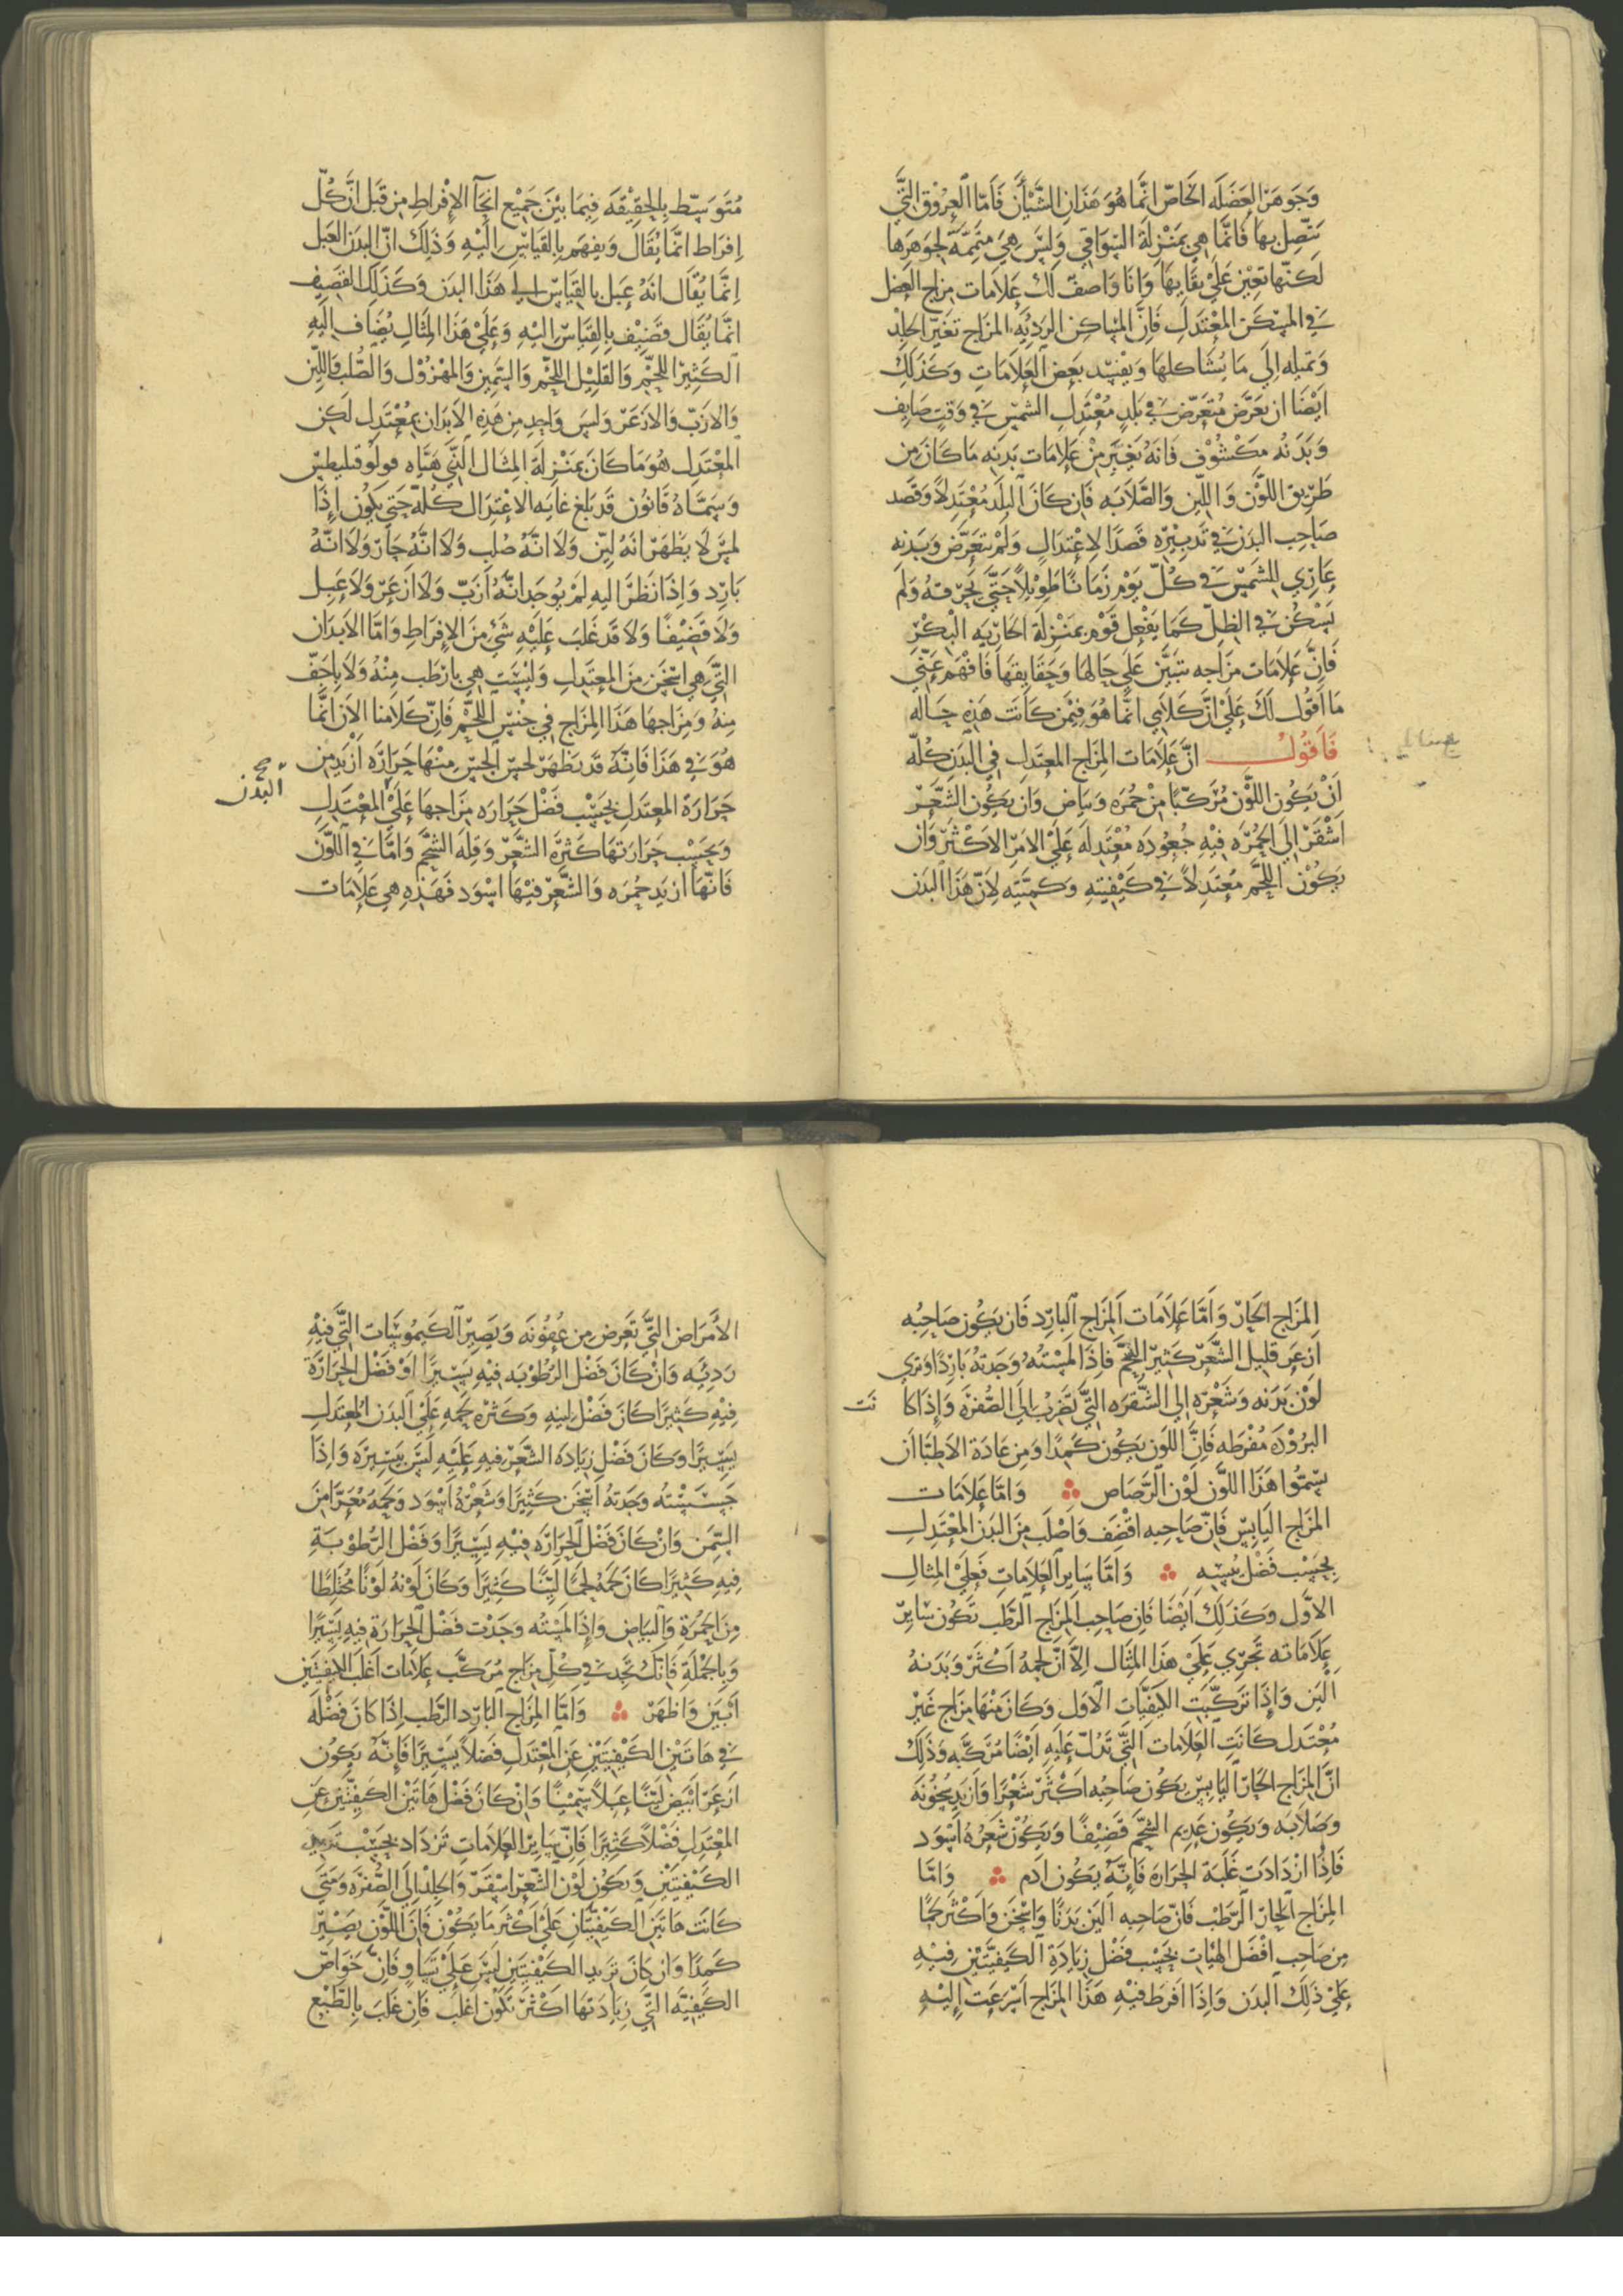 وَجَوهَر العَضَله الخاصّ انَّما هُوَ هَذَان الشَّيْأَن فَأمّا العُروُق التَّي
يَتّصِل بها فَانَّما هِي بمَنْزِلَة السّوَاقي وَليسَ هِيَ متمّمَّهَ لجوَهَرها
لَكنّها تعيْن عَلَيْ بقَايهَا وَانَا وَاصفٌ لَك عَلامَات مِزاج العضل
في المسْكن المعْتدَلِ فَانَّ المسَاكن الردِيَه المزَاج تغَيّر الجلد
وَتميله اِلَي مَا يُشَاكلهَا وَيفْسِد بعَض العَلَامَاتِ وكَذَلَك
ايْضًا ان تعَرّض مُتعَرّض في بَلدٍ مُعْتَدِلِ الشمسْ في وَقتٍ صَايِف
وَبَدَنُه مَكْشُوْف فَانَهُ يَغيّر مِنْ عَلَامَات بَدَنِه مَا كَانَ مِن
طَريْق اللوَّن وَاللّين وَالصَّلَابَه فَان كَانَ البلَد مُعْتَدِلًا وَقصَد
صَاحِب البَدن في تَدبيْره قصَدًا لِاعْتدَالٍ وَلَمْ يتعَرَّض وَبدَنه
عَارِي للِشمسْ في كُلّ يوَم زَمَانًا طَوِيْلًا حَتَّي تحَرقهُ وَلَم
يَسْكُن في الظِلّ كَمَا يَفعْل قوَم بمنزْلَة الجَارِيَه البكْر
فَانَّ عَلَامَات مزَاجه تبَيَّن عَلَي حَالهَا وَحقَايقهَا فَافهَم عَنّي
مَا أَقوُل لَكَ عَلَيْ انَّ كَلَامِي انمَّا هُوَ فيْمَن كَانَت هَذِه حَاله
فَاَقوُل انَّ عَلَامَات المِزَاج المعتَدِل في البَدن كُلّه
اَنْ يكَوُن اللوَّن مُركّبًا مِنْ حُمرَه وَبيَاض وَان يكَوُن الشَّعَر
اَشْقَر اِلَي الحُمرَه فيْهِ جُعُودَه مُعْتَدِلَه عَلَيْ الامرَ الاكَثرَ وَان
يَكوُن اللحَّم مُعتَدِلًا في كَيْفِيتِهِ وَكَميَّتِه لِانَّ هَذَا البَدَن
مُتوَسِّط بِالحقِيْقهَ فِيمَا بيْنَ جَمِيْع انحَآ الإِفْرَاطِ مِن قَبَل انَّ كُلّ
اِفرَاط انمَّا يُقَال وَيفهَم بِالقيَاسْ اِلَيْهِ وَذَلِكَ انَّ البدَن العَبل
اِنمَّا يُقَال انَهُ عَبل بالقيَاسّ الي هَذَا البدَن وَكَذَلَك القضَيف
انمَّا يُقَال قضَيْف بالِقيَاسْ الَيْهِ وَعَلَيْ هَذَا المثَالِ يُضَاف الَيْهِ
الكَثيْر اللحَّم وَالقليْل اللحَّم وَالسَّمِين وَالمهْزوُل وَالصُّلب وَاللّين
وَالازَبّ وَالازعَرّ وَلَيسَ وَاحِد مِن هَذِهِ الابدَان بمعْتَدِل لَكِن
المعْتدَل هُوَ مَا كَانَ بمنَزِلَهَ المثَال الَّتي هَيَّاه فولوُقليطسْ
وَسَمَّاهُ قَانُون قَد بلَغ غايَه الاعْتدَال كُلّه حَتيَ يَكوُن اِذَا
لمسَ لَا يظَهَر انَهُ ليّن وَلَا انَّهُ صُلب وَلَا انَّهُ حَارّ وَلَا انَّهُ
بَارِد وَاِذَا نَظَرَ اليهِ لمْ يوُجَد انَّهُ ازَبّ وَلَا ازعَرّ وَلَا عَبِل
وَلَا قَضَيْفًا وَلَا قَد غَلبَ عَلَيْهِ شَيْ مِن الاِفرَاطِ وَامَّا الابَدَان
التَّي هِي اسْخَن مِنَ المعتَدِل وَليسْتَ هِي بارطَب مِنهُ وَلَا باِجَفّ
مِنهُ وَمِزَاجهَا هَذَا المِزَاج في جنْس اللحَّم فَانّ كَلَامنا الآن انمَّا
هُوَ في هَذَا فَانَّه قَد يظَهَر لحسّ الجسّ مِنْهَا حَرَارَه ازيَد مِن
صح البدن
حَرَارَة المعتدَل بحسَب فَضْل حَرَارَه مزَاجهَا عَلَيْ المعْتَدِل
وَبحسَب حَرَارتهَا كَثرَه الشَّعَر وَقِلَه الشحَّم وَامَّا في اللوَّن
فَانهَّا ازيَد حُمرَه وَالشَّعَر فيْهَا اسْوَد فَهَذِهِ هِي عَلَامَات
المزَاج الحَارّ وَامَّا عَلَامَات المزَاج البارِد فَان يكَوُن صَاحِبُه
ازعَر قَليل الشَّعَر كَثِيْر الشحَّم فَاِذَا لمسْتَهُ وَجَدتهُ بَارِدًا وَتري
لَوْن بَدَنه وَشَعْره اِلي الشُّقرَه التَّي تضَرب اِلَي الصُّفرَه وَاِذَا كا نَت
البرُوْدَه مُفْرطَه فَانَّ اللَون يكَوُن كَمِدًا وَمِن عَادَة الاطبَّا ان
يسَمّوُا هَذَا اللوَّن لَوْن الرَّصَاص وَامَّا عَلَامَات
المزَاج اليَابِس فَانّ صَاحِبه اقضَف وَاصْلَب مِنَ البدَن المعْتَدِل
بحسَب فَضْل يُبسْه وَامَّا سَايِر العَلَامَاتِ فعَلَيْ المثال
الاوَّل وَكَذَلِك ايَضًا فَان صَاحِب المزَاج الرَّطب تكَوُن سَايِر
عَلَامَاته تَجْري عَلَيْ هَذَا المثَال اِلَّا انّ لحمهُ اكْثرَ وَبَدَنهُ
اليَن وَاِذَا ترَكّبَت الكَيفَيَّات الاوَل وَكَانَ مِنْهَا مزَاج غَيْر
مُعْتَدل كَانَت العَلَامَات التَّي تَدُلّ عَلَيهِ ايْضًا مُركَّبه وَذَلِك
انَّ المزَاج الحَارّ اليَابِس يكَوُن صَاحِبُه اكْثرَ شَعْرًا وَازيَد سُخُونَه
وَصَلَابَه وَيكَوُن عَدِيم الشحَّم قَضِيْفًا وَيَكوُن شَعَرهُ اسْوَد
فَاِذَا ازدَادَت غَلبَة الحَرَارَه فَاِنَّه يَكوُن ادَم وَامَّا
المزَاج الحَارّ الرَّطب فَانّ صَاحِبه اليَن بَدَنًا وَاسْخَن وَاكْثرَ لحَمًا
مِن صَاحِب افْضَل الهَيْات بحسَب فَضْل زِيَادَةِ الكَيْفيَّتَيْن فِيْهِ
عَلَيْ ذَلِكَ البدَن وَاِذَا افرَط فيْهِ هَذَا المزَاج اسْرعَت اِليْهِ
الأَمرَاض التَّي تَعرض مِن عفُوْنَه وَيَصِيْر الكَيموُسَات التَّي فيْهِ
رَدِيَّه وَانْ كَانَ فَضْل الرُطوُبَه فيْهِ يَسيْرًا اوْ فَضْل الحَرَارَة
فِيهِ كَثيرًا كَانَ فَضْل ليْنه وَكَثرْه لحمهِ عَلَي البدَن المعتدَل
يَسِيْرًا وَكَانَ فَضْل زِيَادَه الشَّعَر فيهِ عَلَيهِ لَيسَ بيَسِيْرَه وَاِذَا
جَسَسْتُه وَجَدتهُ اسْخَن كَثيْرًا وَشَعْرهُ اسْوَد وَلحَمهُ مُعرًا مِن
السِّمَن وَانْ كَانَ فَضْل الحَرَارَه فِيْهِ يَسيْرًا وَفَضْل الرُّطُوْبَةِ
فِيهِ كَثيرًا كَانَ لحمَهُ لحمًا ليّنًا كَثِيْرًا وَكَانَ لَوْنهُ لَوْنًا مُختَلِطًا
مِن الحمُرةِ وَالبيَاض وَاِذَا لمسْتُه وَجَدْت فَضْل الحَرَارَة فِيهِ يَسِيْرًا
وَباِلجمْلَةِ فَانَّك تجَد في كُلّ مِزَاج مُركَّب عَلَامَات اغلَب الكيفيتَين
ابْيَن وَاظهَر وَامَّا المزَاج البَارِد الرَّطب اِذَا كَانَ فَضْلَه
في هَاتيْن الكَيْفيتَيْن عَن المعْتَدِل فضْلًا يَسِيْرًا فَاِنَّه يكَوُن
ازعَر ابيَض ليّنًا عبلًا سَمِيْنًا وَانْ كَانَ فَضْل هَاتَيْن الكيفيّتَيْن عَن
المعْتَدِل فَضْلًا كَثِيْرًا فَانَّ سَايِر العَلَامَاتِ تزْدَاد بحسَب تزيد
الكَيْفيَتَيْن وَيَكوُن لَوْن الشَّعَر اشْقَر وَالجلد اِلَي الصُّفرَه وَمَتَي
كَانَت هَاتَين الكَيْفيَّتَان عَلَيْ اكْثرَ مَا يَكوُن فَانَّ اللوْن يصَيْر
كَمِدًا وَان كَانَ تزَيد الكَيْفيَتَين ليسَ عَلَيْ تسَاوٍ فَانّ خَوَاصّ
الكَيْفِيَّه التَّي زيَادَتهَا اكْثرَ تكَوُن اغلَب فَان غَلَبَ بِالطّبْع